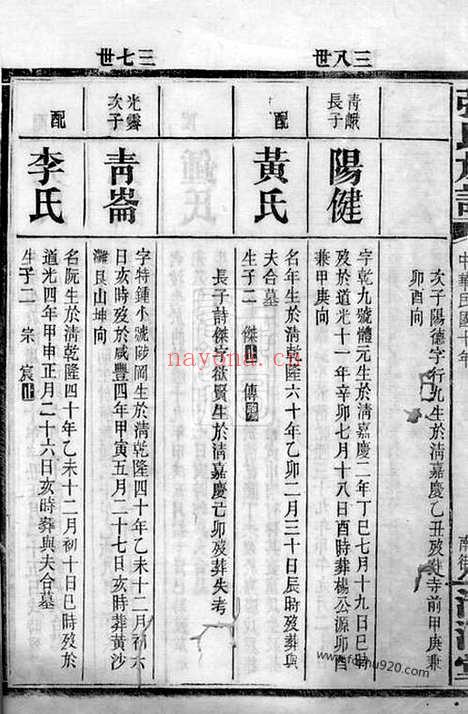 中華民國十年
次子陽德字行九生於清嘉慶乙丑歿葬寺前甲庚兼
卯酉向
三八世
青㠋長子
陽健
字乾九號體元生於清嘉慶二年丁巳七月十九日巳時
歿於道光十一年辛卯七月十八日酉時葬楊公源卯酉
兼甲庚向
配
黃氏
名年生於清乾隆六十年乙卯二月三十日辰時歿葬與
夫合墓
生子二 傑止 傳殤
長子詩傑字欲賢生於清嘉慶己卯歿葬失考
三七世
光霽次子
青崙
字特鍾小號陟岡生於清乾隆四十年乙未十二月初六
日亥時歿於咸豐四年甲寅五月二十七日亥時葬黃沙
灘艮山坤向
配
李氏
名阮生於清乾隆四十年乙未十二月初十日巳時歿於
道光四年甲申正月二十六日亥時葬與夫合墓
生子二 宗 宸止
nayona.cn
fojinu920.com